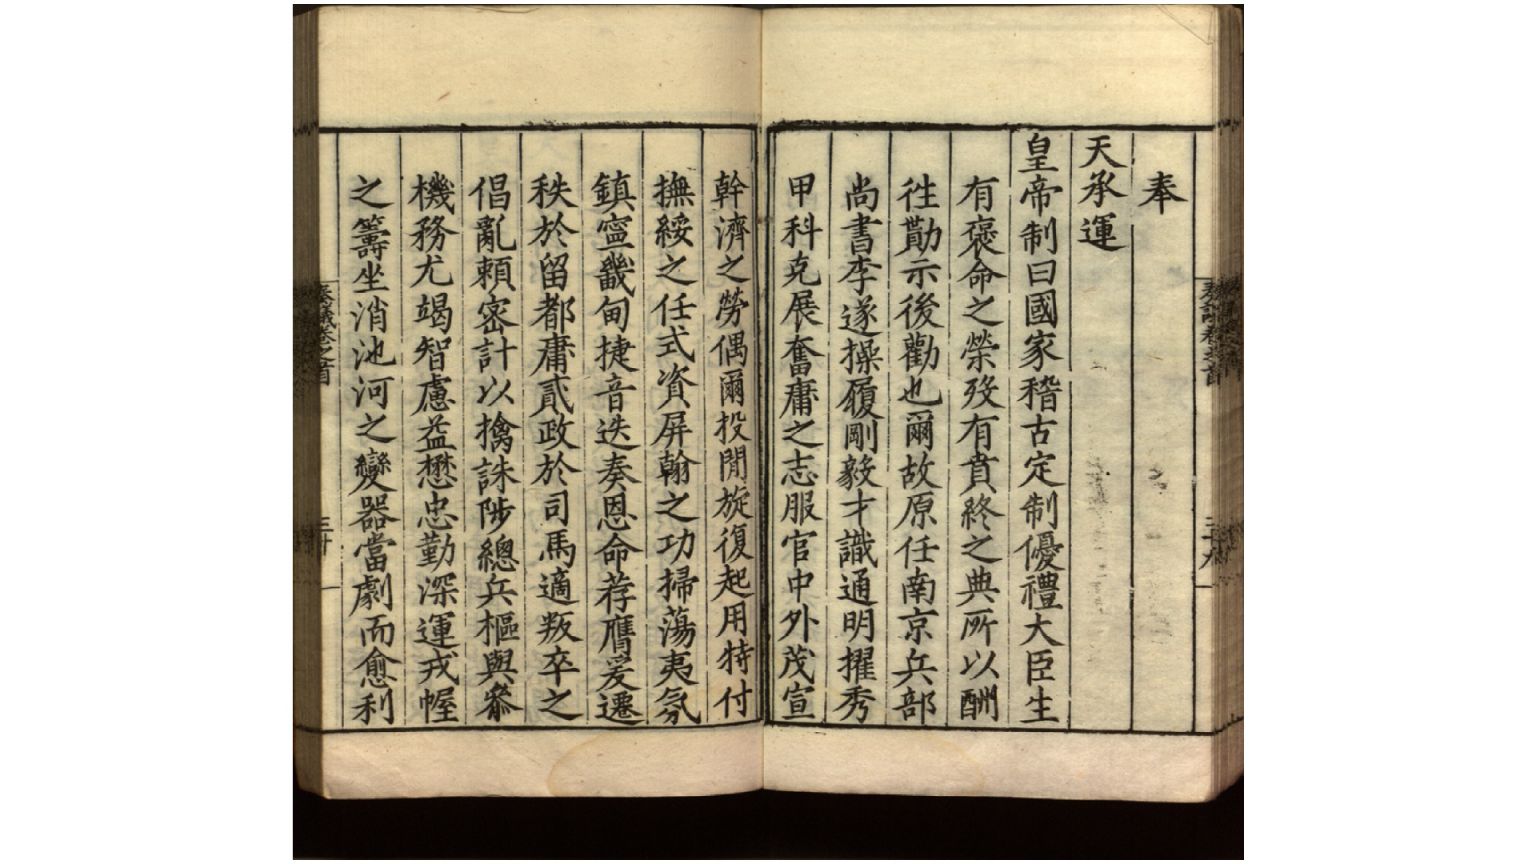 奉
天承運
皇帝制曰國家稽古定制優禮大臣生
有褒命之榮歿有賁終之典所以酬
徃勩示後勸也爾故原任南京兵部
尚書李遂操履剛毅才識通明擢秀
甲科克展奮庸之志服官中外茂宣
幹濟之勞偶爾投閒旋復起用特付
撫綏之任式資屏翰之功掃蕩夷氛
鎮寧畿甸捷音迭奏恩命荐膺爰遷
秩於留都庸貳政於司馬適叛卒之
倡亂頼密計以擒誅陟總兵樞與叅
機務尤竭智慮益懋忠勤深運戎幄
之籌坐消池河之變器當劇而愈利